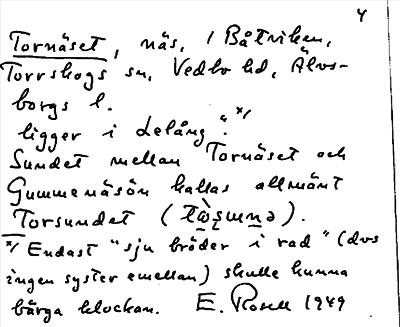 4
Tornäset, näs, i Båtviken,
Torrskogs sn, Vedbo hd, Älvs-
borgs l.
ligger i Lelång." x/
Sundet mellan Tornäset och
Gummenäsön kallas allmänt
Torsundet
x/ Endast "sju bröder i rad" (dvs
ingen syster emellan) skulle kunna
bärga klockan. E. Rosell 1949